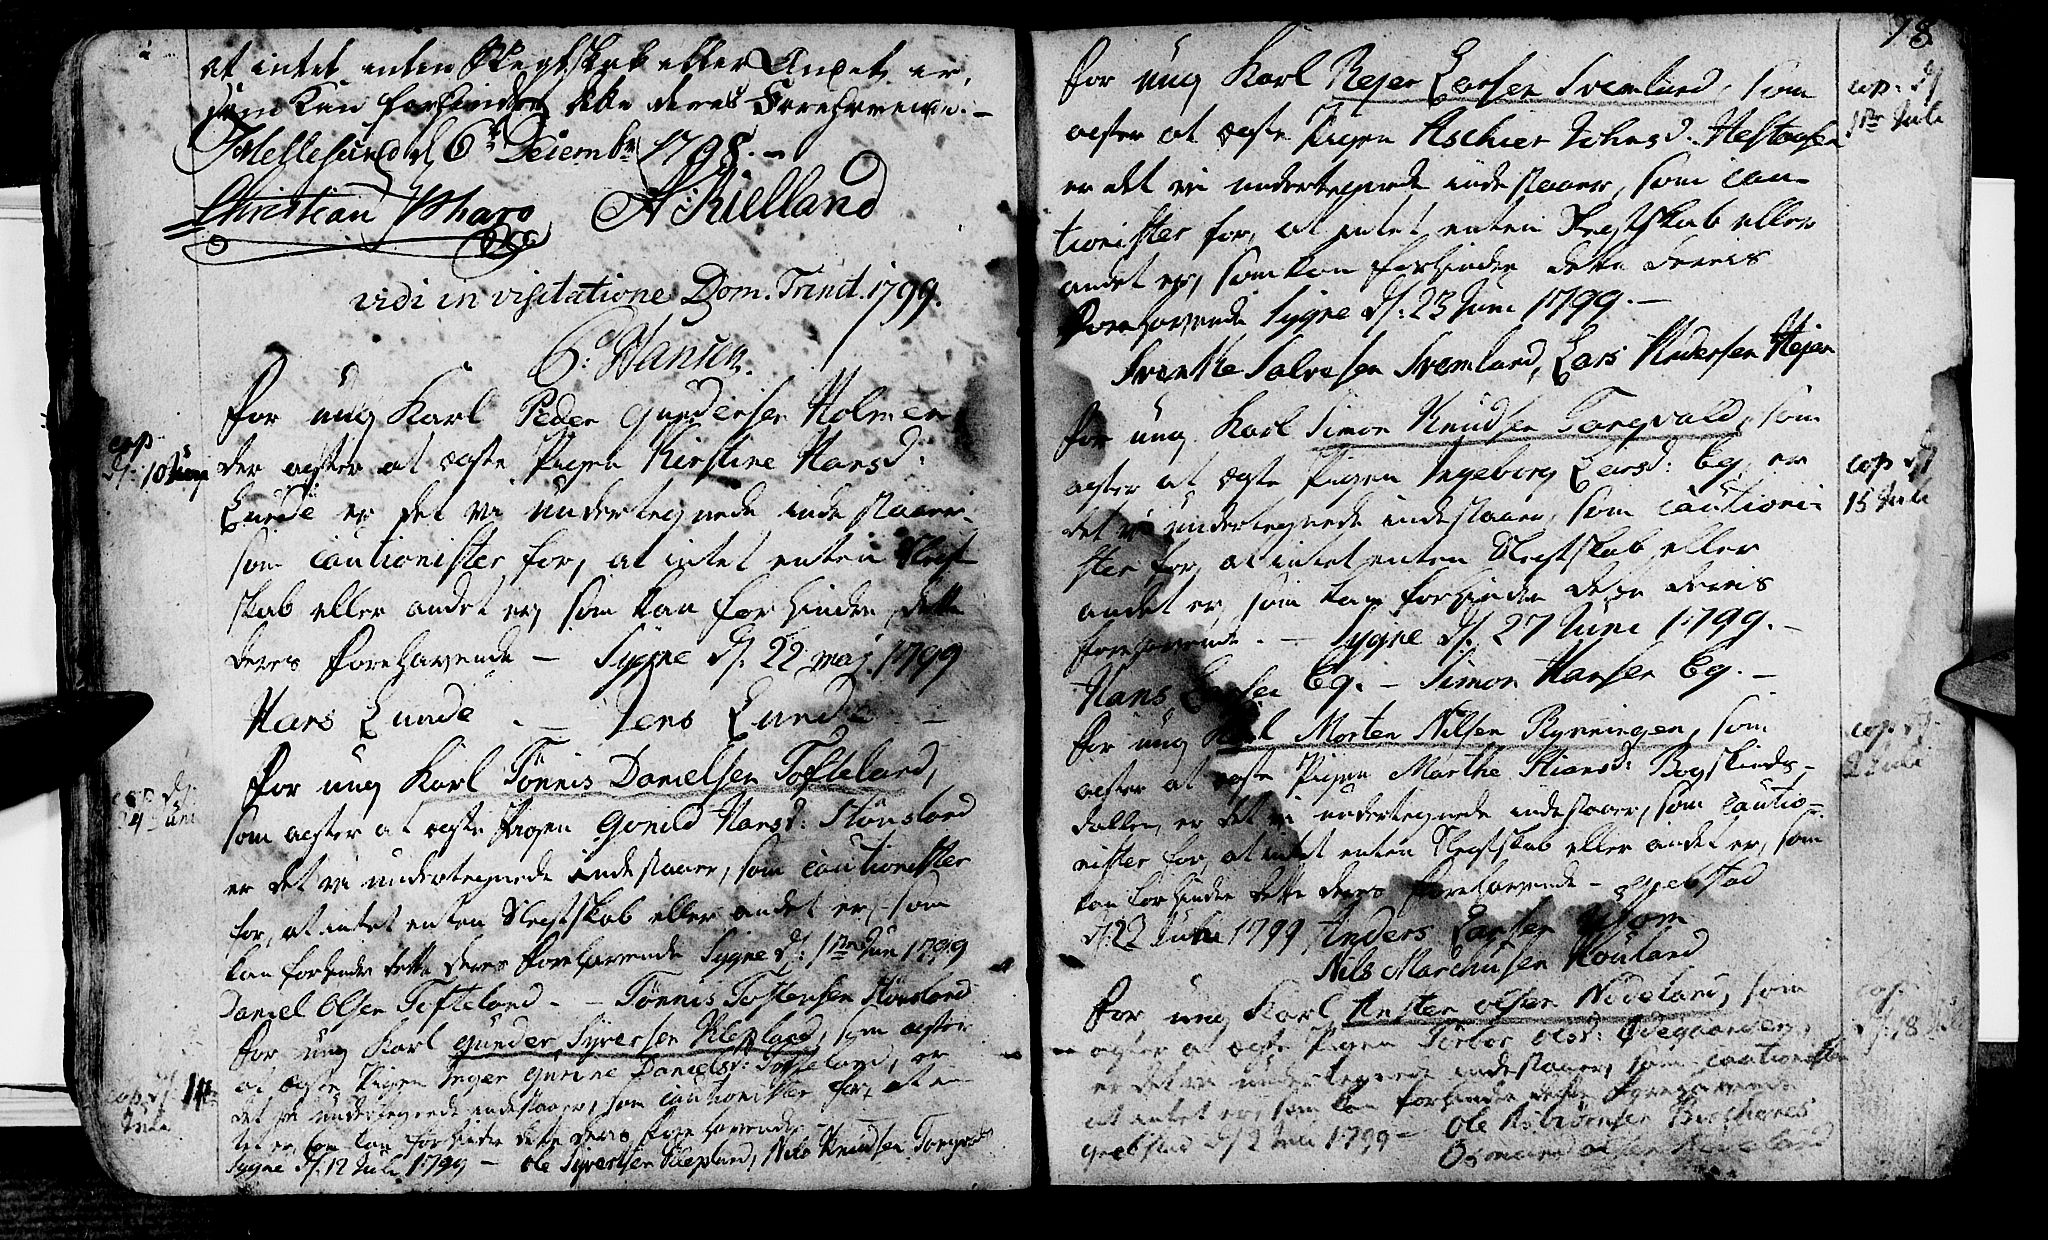 at intet enten Slegtskab eller Andet er,
som kan forhindre dette deres Forehavende. —
Hellesund d 6te Decembr 1798. —
Christian Pharo A: Kielland
vidi in visitatione Dom. Trinit. 1799.
C: Hansen.
For ung Karl Peder Gundersen Holmen
der agter at ægte Pigen Kirstine Hansd:
Lunde er det vi undertegnede indestaaer
som Cautionister for, at intet enten Slegt
skab eller andet er, som kan forhindre dette
deres Forehavende — Sygne d: 22 maj 1799
Hans Lunde — Jens Lunde —
cop
d: 10 Juny
For ung Karl Tönnis Danielsen Tofteland,
som agter at ægte Pigen Gonild Hansd: Stönsland
er det vi undertegnede indestaaer, som Cautionister
for, at intet enten Slegtskab eller andet er, som
kan forhindre dette deres Forehavende Sygne d: 1ste Jun 1799
Daniel Olsen Tofteland — Tönnis Tostensen Stönsland
cop d:
24 Juni
For ung Karl Gunder Syversen Klepland, som agter
at ægte Pigen Inger Gurine Danielsd: Tofteland, er
det vi undertegnede indestaaer, som Cautionister for, at in
tet er, som kan forhindre dette deres Forehavende —
Sygne d: 12 Juli 1799 — Ole Syvertsen Klepland, Nils Knudsen Torgvald
cop d: 14
Juli
98
For ung Karl Rejer Larsen Svemland, som
agter at ægte Pigen Aschier Johnsd:
er det vi undertegnede indestaaer, som Cau-
tionister for, at intet enten Slegtskab eller
andet er, som kan forhindre dette deres
Forehavende Sygne d: 23 Juni 1799. —
Svenke Salvesen Svemland, Lars Andersen
cop: d:
1ste Juli
For ung Karl Simon Knudsen Torgvald, som
agter at ægte Pigen Ingeborg Larsd: Eg, er
det vi undertegnede indestaaer, som Cautioni-
ster for, at intet enten Slegtskab eller
andet er, som kan forhindre dette deres
Forehavende. — Sygne d: 27 Juni 1799. —
Hans Larsen Eg. — Simon Hansen Eg. —
cop d:
15 Juli
For ung Karl Morten Nilsen Rynningen, som
agter at ægte Pigen Marthe Stiansd: Bogskinds-
dallen, er det vi undertegnede indestaaer, som Cautio-
nister for, at intet enten Slegtskab eller andet er, som
kan forhindre dette deres Forehavende —
d: 2 Juli 1799 Anders Larsen
Nils Marchusen
cop d:
2 Juli
For ung Karl Olsen Nodeland, som
agter at ægte Pigen Torbor Olsd: Ødegaarden,
er det vi undertegnede indestaaer, som Cautionister
at intet er, som kan forhindre dette Forehavende
Grebstad d: 2 Juli 1799 — Ole Asbiörnsen
Osmund Olsen Nodeland
cop
d: 18